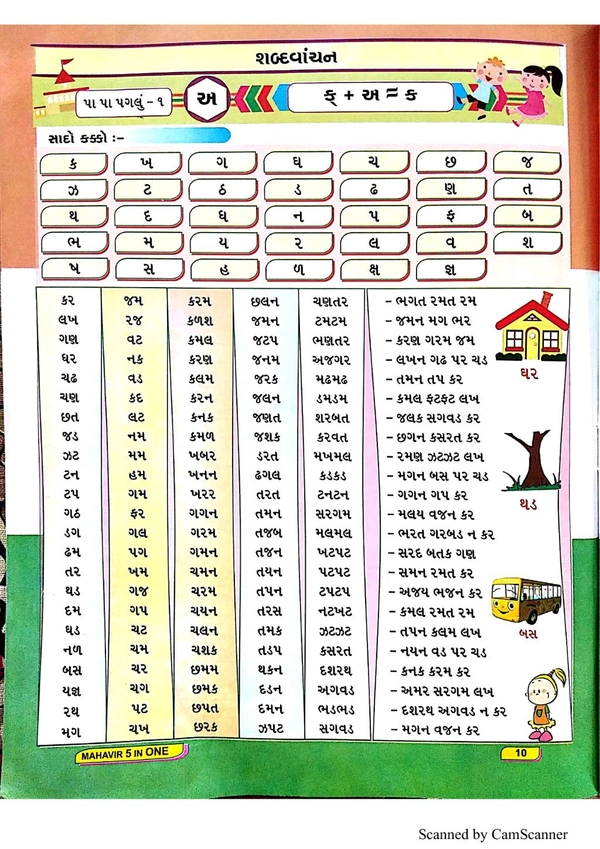 શબ્દવાંચન
પા પા પગલું - ૧ અ ક્ + અ = ક
સાદો કક્કો :-
ક ખ ગ ઘ ચ છ જ
ઝ ટ ઠ ડ ઢ ણ ત
થ દ ધ ન પ ફ બ
ભ મ ય ર લ વ શ
ષ સ હ ળ ક્ષ જ્ઞ
કર જમ કરમ છલન ચણતર - ભગત રમત રમ
લખ રજ કળશ જમન ટમટમ - જમન મગ ભર
ગણ વટ કમલ જટપ ભણતર - કરણ ગરમ જમ
ઘર નક કરણ જનમ અજગર - લખન ગઢ પર ચડ
ચઢ વડ કલમ જરક મઢમઢ - તમન તપ કર
ચણ કદ કરન જલન ડમડમ - કમલ ફટફટ લખ
છત લટ કનક જણત શરબત - જલક સગવડ કર
જડ નમ કમળ જશક કરવત - છગન કસરત કર
ઝટ મમ ખબર ડરત મખમલ - રમણ ઝટઝટ લખ
ટન હમ ખનન ઢગલ કડકડ - મગન બસ પર ચડ
ટપ ગમ ખરર તરત ટનટન - ગગન ગપ કર
ગઠ ફર ગગન તમન સરગમ - મલય વજન કર
ડગ ગલ ગરમ તજબ મલમલ - ભરત ગરબડ ન કર
ઢમ પગ ગમન તજન ખટપટ - સરદ બતક ગણ
તર ખમ ચમન તયન પટપટ - સમન રમત કર
થડ ગજ ચરમ તપન ટપટપ - અજય ભજન કર
દમ ગપ ચયન તરસ નટખટ - કમલ રમત રમ
ઘડ ચટ ચલન તમક ઝટઝટ - તપન કલમ લખ
નળ ચમ ચશક તડપ કસરત - નયન વડ પર ચડ
બસ ચર છમમ થકન દશરથ - કનક કરમ કર
યજ્ઞ ચગ છમક દડન અગવડ - અમર સરગમ લખ
રથ પટ છપત દમન ભડભડ - દશરથ અગવડ ન કર
મગ ચખ છરક ઝપટ સગવડ - મગન વજન કર
ઘર
થડ
બસ
MAHAVIR 5 IN ONE
10
Scanned by CamScanner